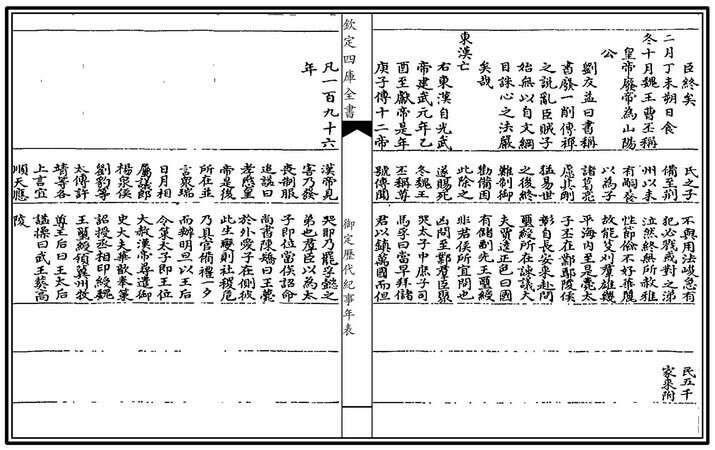 臣終矣
二月丁未朔日食
冬十月魏王曹丕稱
皇帝廢帝為山陽
公
劉友益曰書稱
書廢一削傳禪
之說亂臣賊子
始無以自文綱
目誅心之法嚴
矣哉
東漢亡
右東漢自光武
帝建武元年乙
酉至獻帝是年
庚子傳十二帝
氏之子
備至荆
州以來
有嗣養
以為子
諸葛亮
慮其剛
猛易世
之後終
難制御
勸備因
此除之
遂賜死
冬魏王
丕稱尊
號傳聞
不與用法峻急有
犯必戮或對之涕
泣然終無所赦雅
性節儉不好華麗
故能芟刈羣雄幾
平海内至是薨太
子丕在鄴鄢陵侯
彰自長安來赴問
璽綬所在諫議大
夫賈逵正色曰國
有儲副先王璽綬
非君侯所宜問也
凶問至鄴羣臣聚
哭太子中庶子司
馬孚曰當早拜儲
君以鎮萬國而但
民五千
家來附
欽定四庫全書
御定歴代紀事年表
凡一百九十六
年
漢帝見
害乃發
喪制服
追諡曰
孝愍皇
帝是後
所在並
言衆瑞
日月相
屬議郎
楊泉侯
劉豹等
太傅許
靖等各
上言宜
順天應
哭耶乃罷孚懿之
弟也羣臣以為太
子即位當俟詔命
尚書陳矯曰王薨
於外愛子在側彼
此生變則社稷危
乃具官備禮一夕
而辦明旦以王后
令策太子即王位
大赦漢帝尋遣御
史大夫華歆奉策
詔授丞相印綬魏
王璽綬領冀州牧
尊王后曰王太后
諡操曰武王葬高
陵